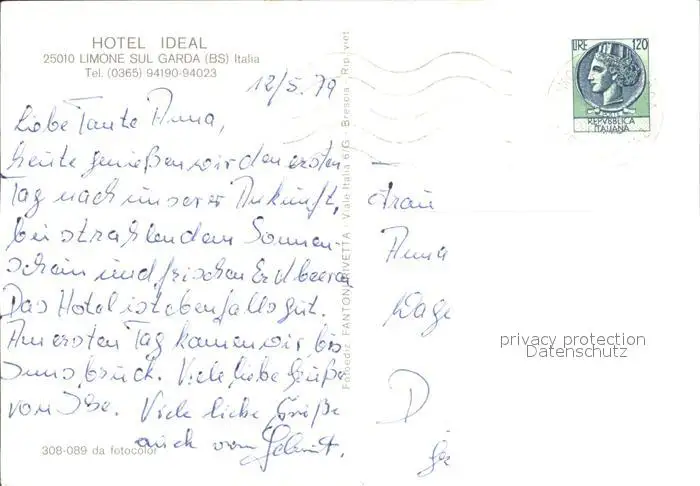 HOTEL IDEAL
25010 LIMONE SUL GARDA (BS) Italia
Tel. (0365) 94190-94023
12/5.79
Liebe Tante Anna,
heute genießen wir den ersten
Tag nach unserer Ankunft,
bei strahlendem Sonnen-
schein und frischen Erdbeeren
Das Hotel ist ebenfalls gut.
Am ersten Tag kamen wir bis
Innsbruck. Viele liebe Grüße
von Ilse. Viele liebe Grüße
auch vom
308-089 da fotocolor
Fotoediz. FANTONI RIVETTA - Viale Italia 6/G - Brescia - Rip. viet.
LIRE 120
REPVBBLICA
ITALIANA
Frau
Anna
D
privacy protection
Datenschutz